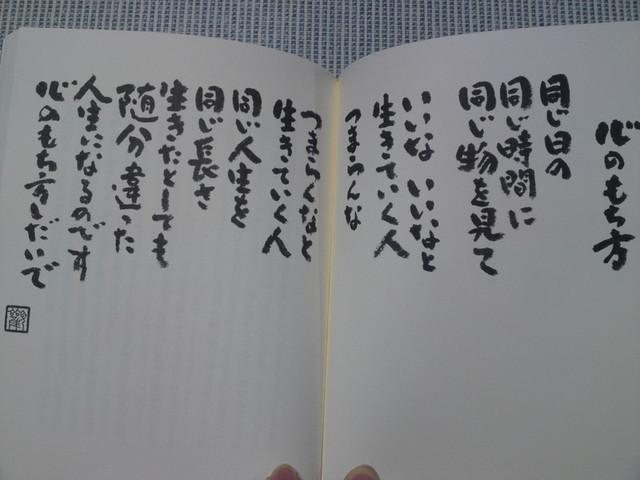 心のもち方
同じ日の
同じ時間に
同じ物を見て
いいな いいなと
生きていく人
つまらんな
つまらくなと
生きていく人
同じ人生を
同じ長さ
生きたとしても
随分違った
人生になるのです
心のもち方しだいで